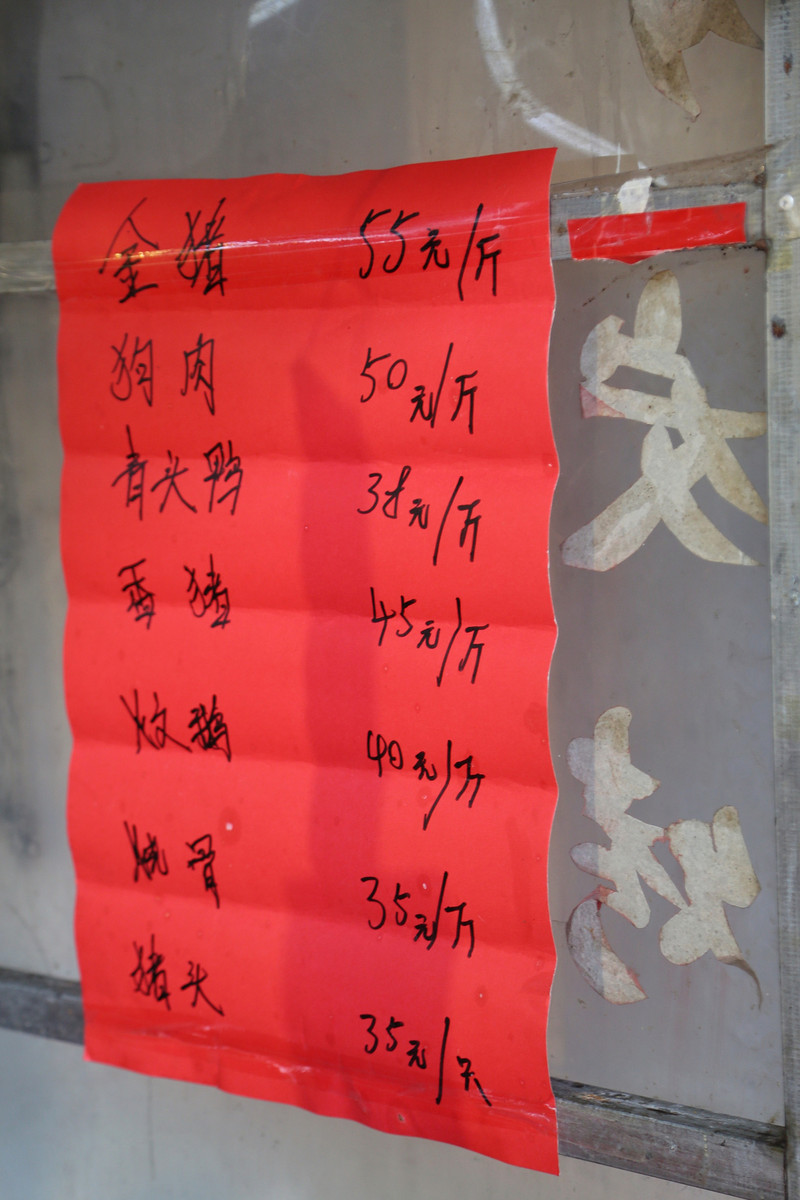 金猪 55元/斤
狗肉 50元/斤
青头鸭 38元/斤
香猪 45元/斤
炆鹅 40元/斤
烧骨 35元/斤
猪头 35元/